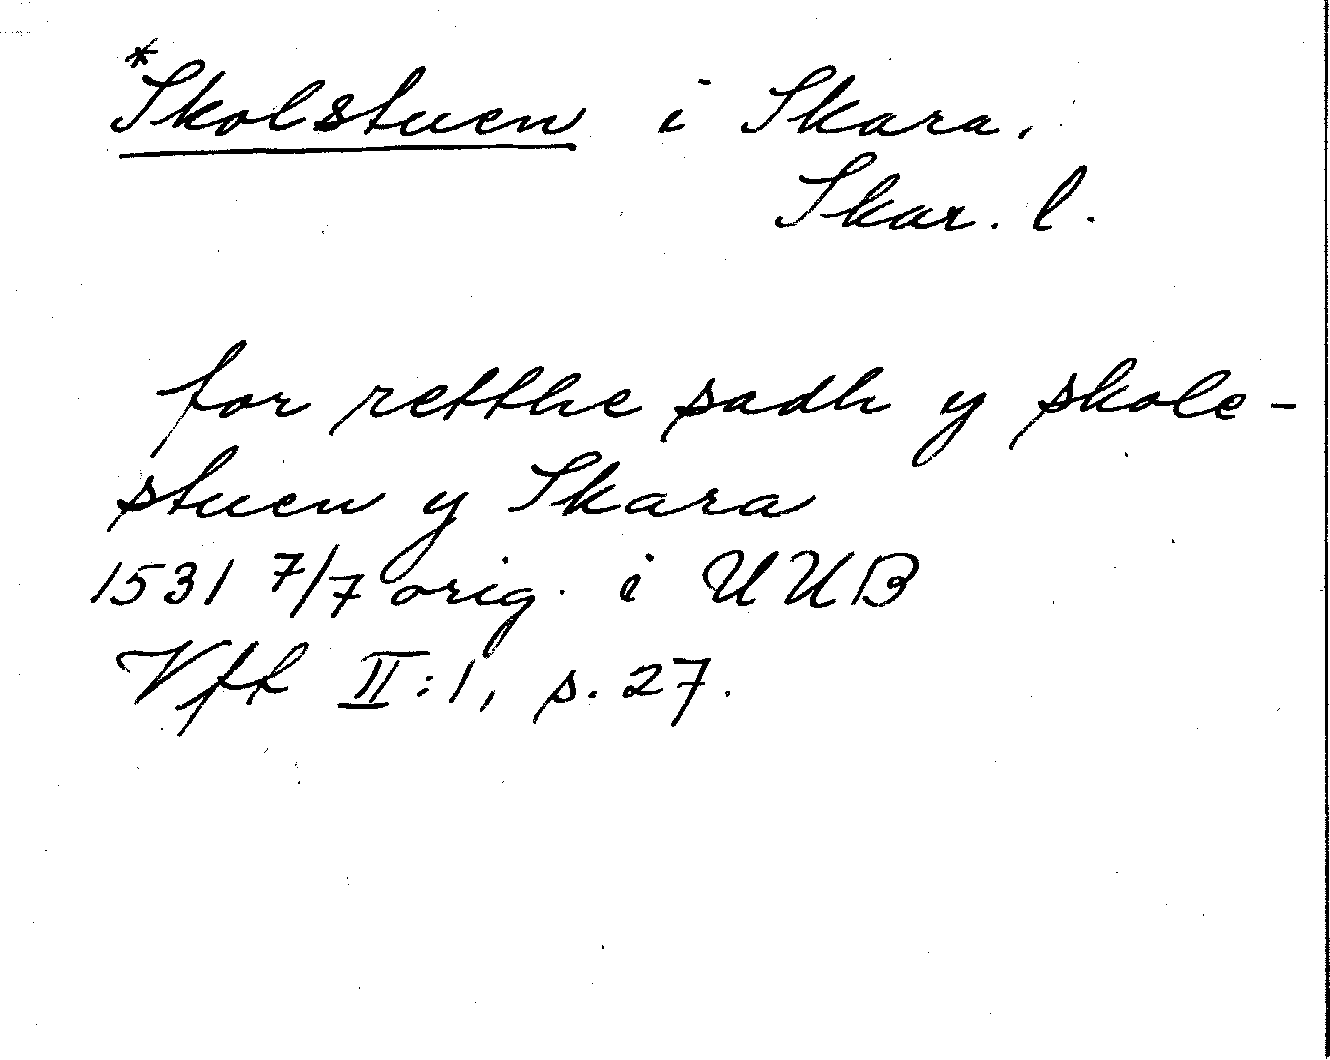 *Skolstuen i Skara.
Skar. l.
for retthe sadh y skole-
stuen y Skara
1531 7/7 orig. i UUB
Vff II:1, s. 27.